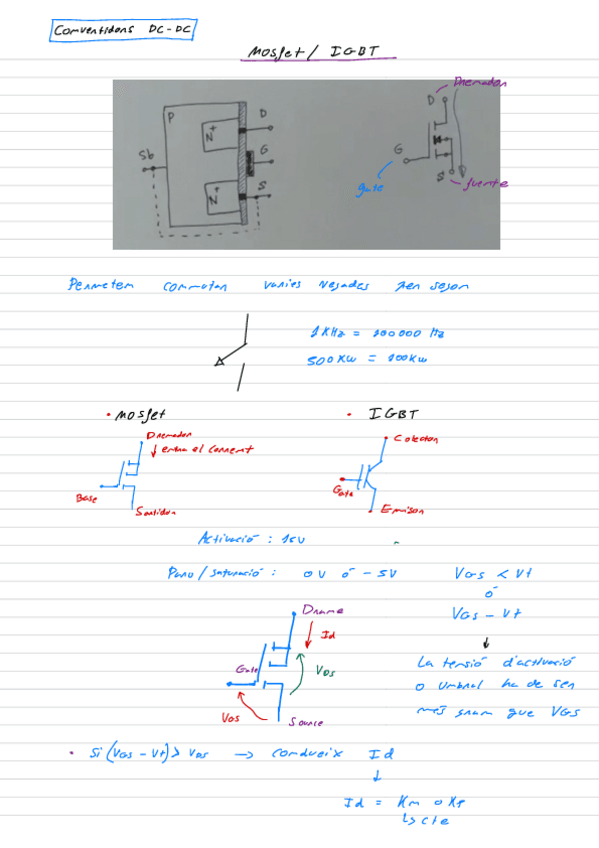 Conventidons DC-DC
Mosfet / IGBT
Drenador
D
P
N+
D
G
Sb
N+
S
G
gate
S
fuente
Permetem commutar varies vegades per segon
1KHz = 100000 Hz
500Kw = 100Kw
• mosfet
• IGBT
Drenador
↓ entra el corrent
Colector
Base
Gate
Sortidor
Emisor
Activació : 15V
Paro/saturació : 0V ó -5V
VGS < Vt
ó
VGS - Vt
↓
La tensió d'activació
o umbral ha de ser
més gran que VGS
Drame
Id
Gate
VDS
VGS
Source
• Si (VGS - Vt) > VDS → condueix Id
↓
Id = Km o Kp
↳ cte